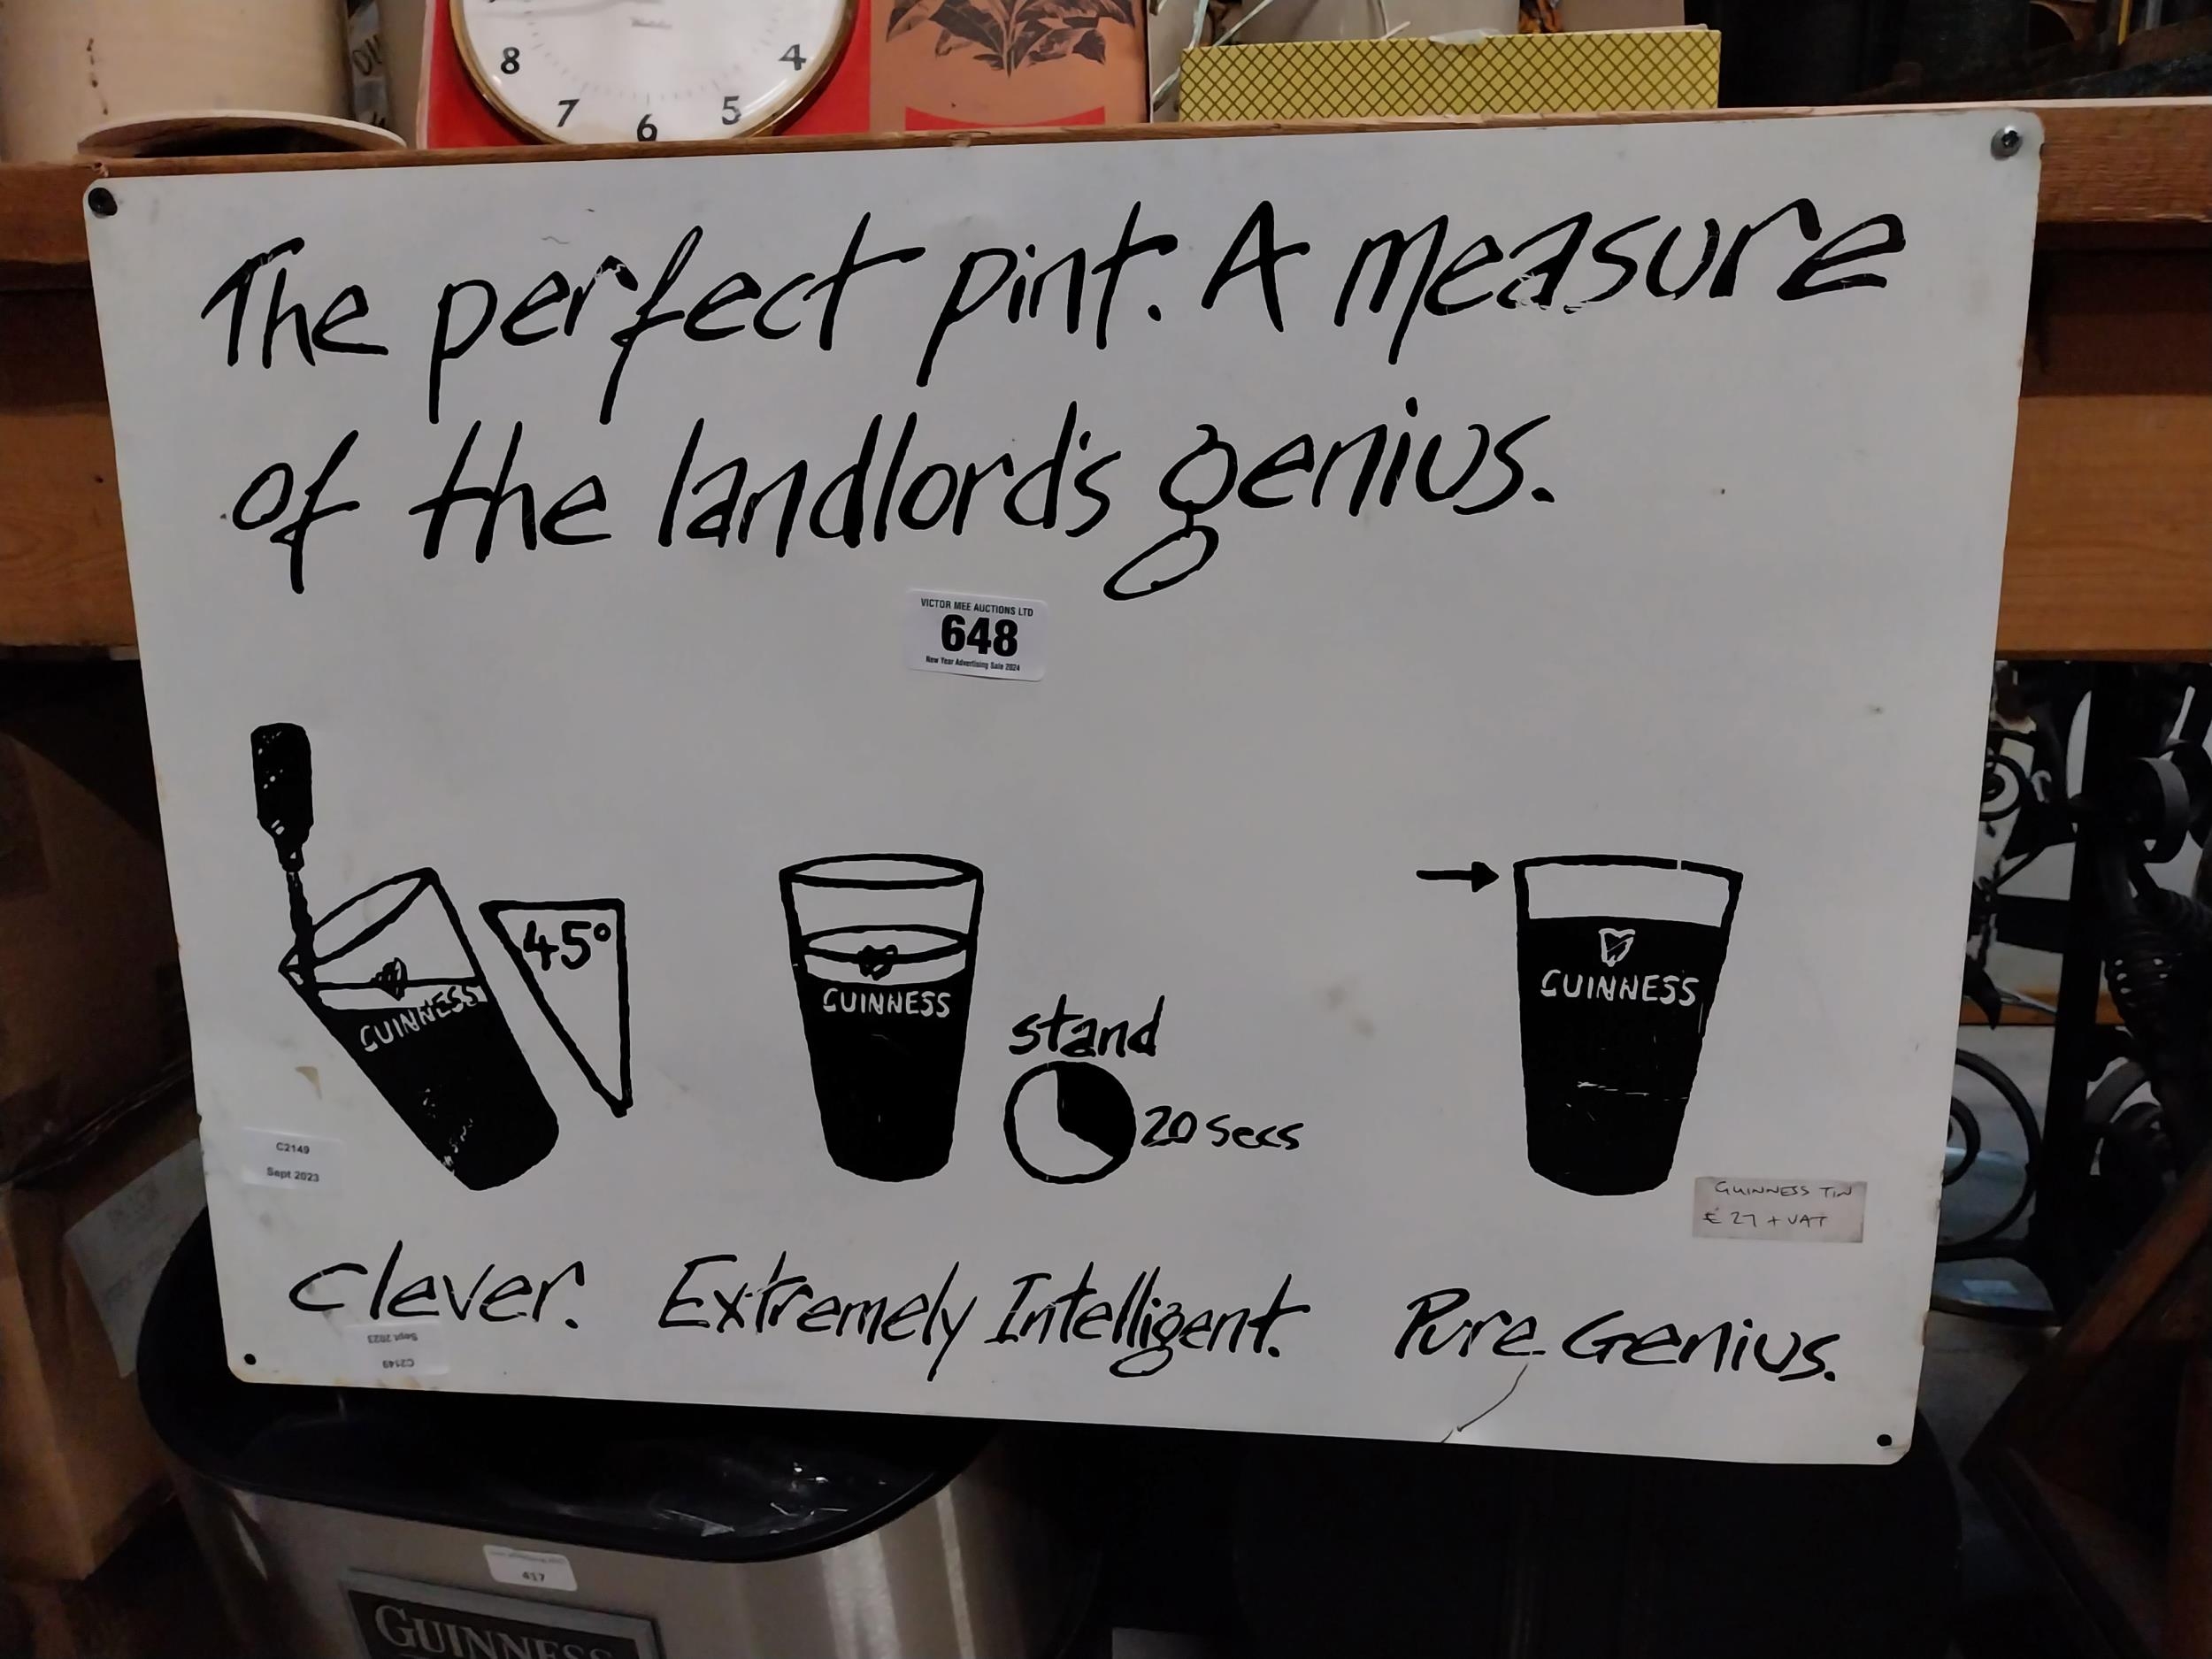 8
7
6
5
4
The perfect pint. A measure
of the landlord's genius.
VICTOR MEE AUCTIONS LTD
648
New Year Advertising Sale 2024
45°
GUINNESS
GUINNESS
stand
20 secs
GUINNESS
C2149
Sept 2023
GUINNESS TIN
€ 27 + VAT
Clever. Extremely Intelligent. Pure Genius.
Sept 2023
C2149
417
GUINNESS